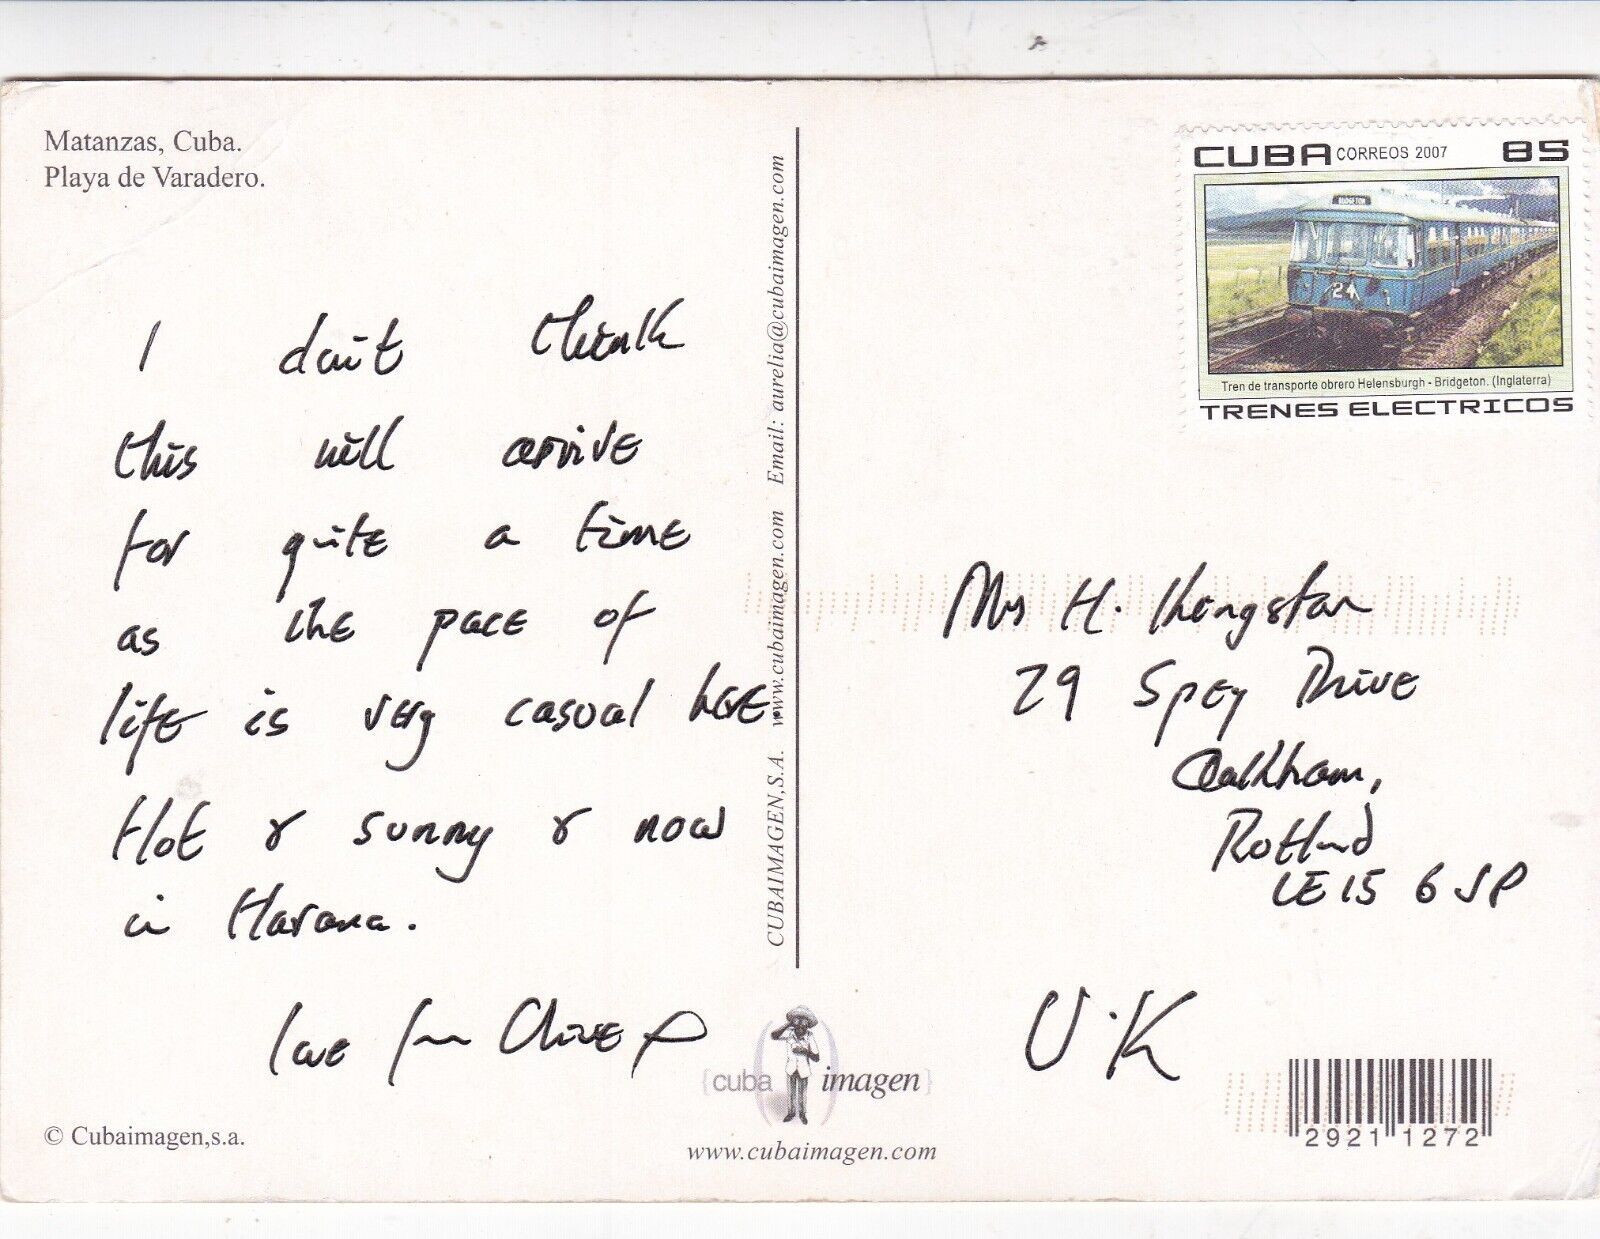 Matanzas, Cuba.
Playa de Varadero.
I don't think
this will arrive
for quite a time
as the pace of
life is very casual here.
Hot & sunny & now
in Havana.
love from Clive
© Cubaimagen,s.a.
CUBAIMAGEN,S.A. www.cubaimagen.com Email: aurelia@cubaimagen.com
{cuba imagen}
www.cubaimagen.com
CUBA CORREOS 2007 85
BRIDGETON
24
Tren de transporte obrero Helensburgh - Bridgeton. (Inglaterra)
TRENES ELECTRICOS
Mrs H.
29 Spey Drive
Oakham,
Rutland
LE15 6SP
U.K
2921 1272